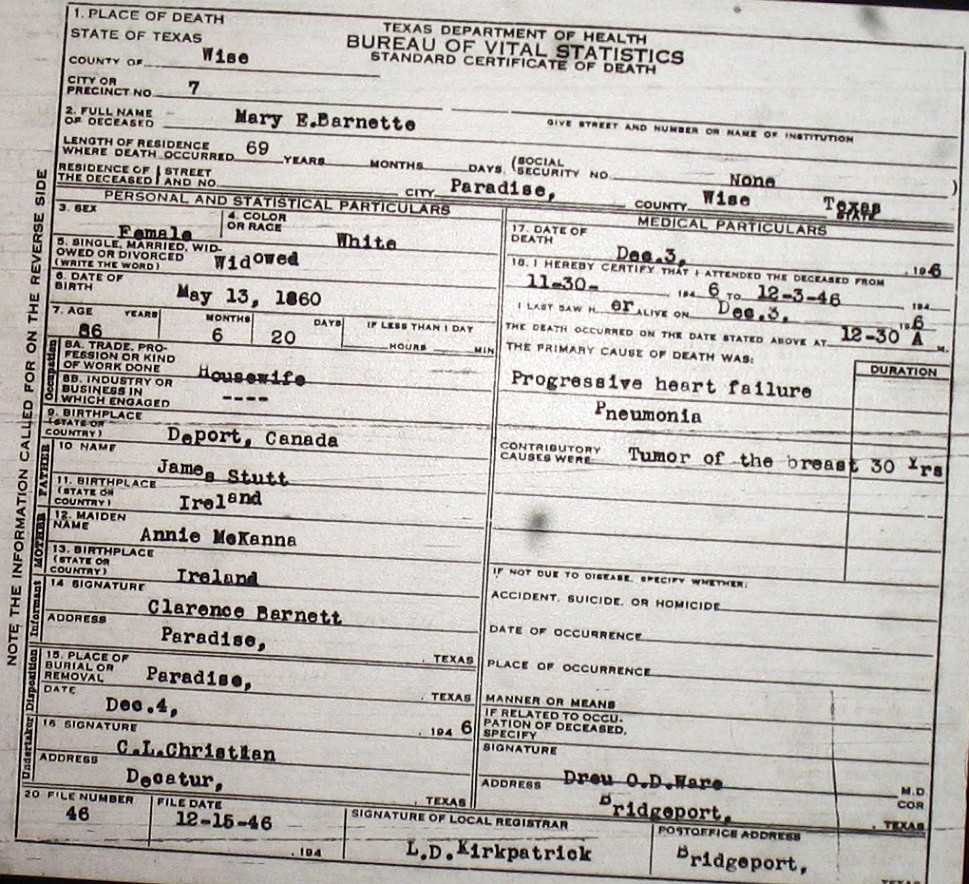 NOTE THE INFORMATION CALLED FOR ON THE REVERSE SIDE
TEXAS DEPARTMENT OF HEALTH
BUREAU OF VITAL STATISTICS
STANDARD CERTIFICATE OF DEATH
1. PLACE OF DEATH
STATE OF TEXAS
COUNTY OF Wise
CITY OR
PRECINCT NO. 7
GIVE STREET AND NUMBER OR NAME OF INSTITUTION
2. FULL NAME
OF DECEASED Mary E.Barnette
LENGTH OF RESIDENCE
WHERE DEATH OCCURRED 69 YEARS MONTHS DAYS. (SOCIAL
SECURITY NO. None )
RESIDENCE OF STREET
THE DECEASED AND NO. CITY Paradise, COUNTY Wise Texas
STATE
PERSONAL AND STATISTICAL PARTICULARS
3. SEX
Female
4. COLOR
OR RACE
White
5. SINGLE, MARRIED, WID-
OWED OR DIVORCED
(WRITE THE WORD) Widowed
6. DATE OF
BIRTH May 13, 1860
7. AGE YEARS MONTHS DAYS IF LESS THAN 1 DAY
86 6 20 HOURS MIN
Occupation
8A. TRADE, PRO-
FESSION OR KIND
OF WORK DONE Housewife
8B. INDUSTRY OR
BUSINESS IN
WHICH ENGAGED ----
9. BIRTHPLACE
(STATE OR
COUNTRY) Deport, Canada
FATHER
10 NAME
James Stutt
11. BIRTHPLACE
(STATE OR
COUNTRY) Ireland
MOTHER
12. MAIDEN
NAME Annie McKanna
13. BIRTHPLACE
(STATE OR
COUNTRY) Ireland
Informant
14 SIGNATURE
Clarence Barnett
ADDRESS
Paradise, . TEXAS
Disposition
15. PLACE OF
BURIAL OR
REMOVAL Paradise, . TEXAS
DATE
Dec.4, . 194 6
Undertaker
16 SIGNATURE
C.L.Christian
ADDRESS
Decatur, . TEXAS
MEDICAL PARTICULARS
17. DATE OF
DEATH Dec.3, . 19 6
18. I HEREBY CERTIFY THAT I ATTENDED THE DECEASED FROM
11-30- 194 6 TO 12-3-46 194
I LAST SAW H er ALIVE ON Dec.3. 6
THE DEATH OCCURRED ON THE DATE STATED ABOVE AT 12-30 A M.
THE PRIMARY CAUSE OF DEATH WAS: DURATION
Progressive heart failure
Pneumonia
CONTRIBUTORY
CAUSES WERE Tumor of the breast 30 Yrs
IF NOT DUE TO DISEASE, SPECIFY WHETHER:
ACCIDENT, SUICIDE, OR HOMICIDE
DATE OF OCCURRENCE
PLACE OF OCCURRENCE
MANNER OR MEANS
IF RELATED TO OCCU-
PATION OF DECEASED,
SPECIFY
SIGNATURE
Dreu O.D.Ware M.D
COR
ADDRESS
Bridgeport, . TEXAS
20 FILE NUMBER FILE DATE SIGNATURE OF LOCAL REGISTRAR POSTOFFICE ADDRESS
46 12-15-46 L.D.Kirkpatrick Bridgeport,
. 194 TEXAS